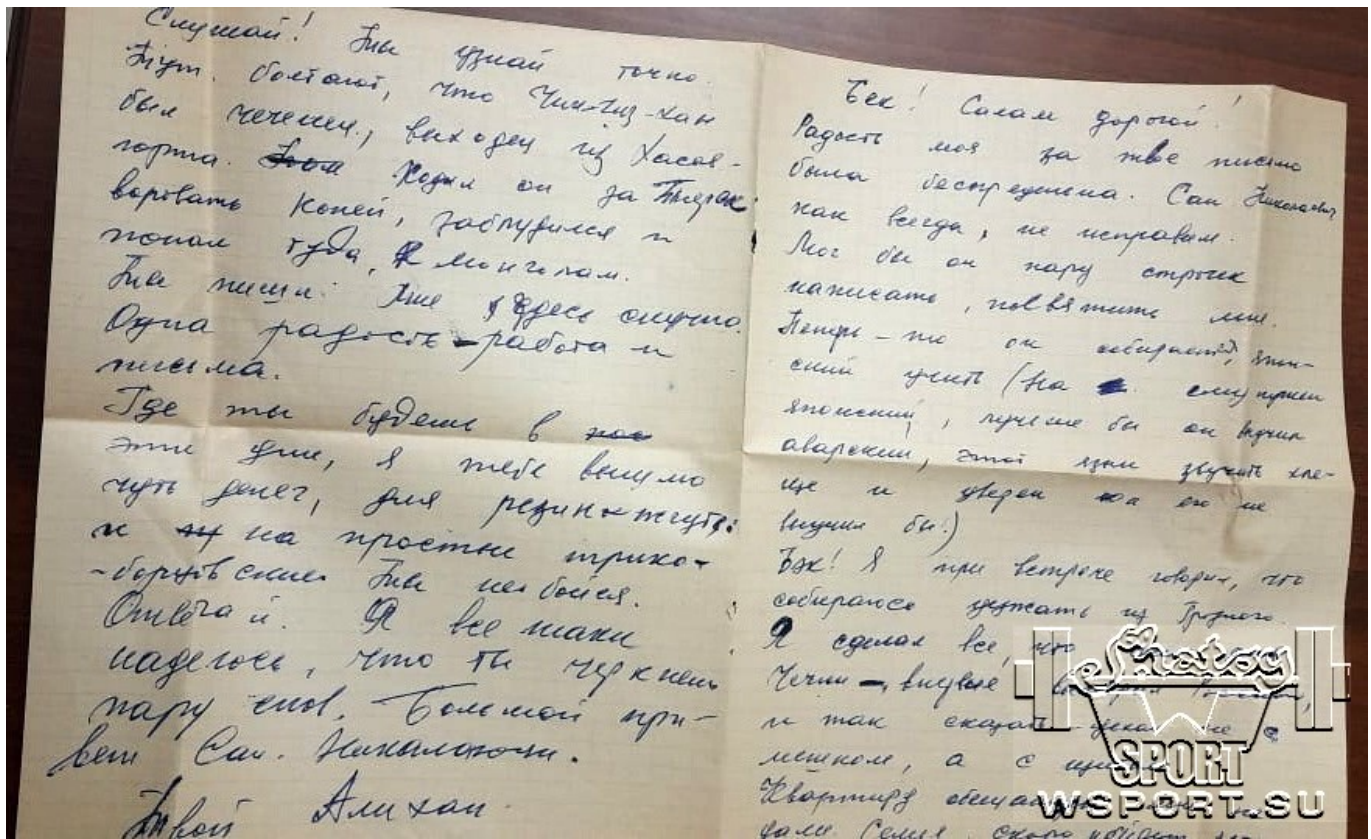 Слушай! Ты узнай точно.
Тут болтают, что Чингиз-хан
был чеченец, выходец из Хасав-
юрта. Ходил он за Терек
воровать коней, заблудился и
попал туда, к монголам.
Ты пиши. Мне здесь скучно.
Одна радость – работа и
письма.
Где ты будешь в
эти дни, я тебе вышлю
чуть денег, для резин-жгута
и на простые трико-
-борцовские. Ты не бойся.
Отвечай. Я все таки
надеюсь, что ты черкнешь
пару слов. Большой при-
вет Сан. Николаючи.
Твой Алихан
Бек! Салам дорогой!
Радость моя за твое письмо
была беспредельна. Сан Николаевич
как всегда, не исправим.
Мог бы он пару строчек
написать, посвятить мне.
Теперь-то он собирается, япон-
ский учить (на ему нужен
японский, лучше бы он выучил
аварский, этот язык звучит хле-
ще и уверен он его не
выучил бы!)
Бэк! Я при встрече говорил, что
собираюсь уезжать из Грозного.
Я сделал все, что
Чечни –, впервые
и так сказать не с
мешком, а с
Квартиру обещали
дали. Семья, скоро
Shatoy
SPORT
WSPORT.SU